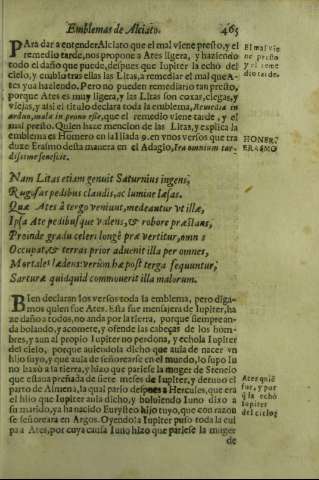 Emblemas de Alciato. 465
Para dar a entender Alciato que el mal viene presto, y el
remedio tarde, nos propone a Ates ligera, y haziendo
todo el daño que puede, despues que Iupiter la echò del
cielo, y embio tras ellas las Litas, a remediar el mal que A-
tes yua haziendo. Pero no pueden remediar tan presto,
porque Ates es muy ligera, y las Litas son coxas, ciegas, y
viejas, y assi el titulo declara toda la emblema, Remedia in
arduo, mala in prono esse, que el remedio viene tarde, y el
mal presto. Quien haze mencion de las Litas, y explica la
emblema es Homero en la Iliada 9. en vnos versos que tra
duze Erasmo desta manera en el Adagio, Ira omnium tar-
dissime senescit.
El mal vie
ne presto
y el reme
dio tarde.
HOMER?
ERASMO
Nam Litas etiam genuit Saturnius ingens,
Rugosas pedibus claudis, ac lumine læsas.
Quæ Ates à tergo veniunt, medeantur vt illæ,
Ipsa Ate pedibusque valens, & robore præstans,
Proinde gradu celeri longè præ vertitur, omn s
Occupat, & terras prior aduenit illa per omnes,
Mortales lædens: verùm hæ post terga sequuntur,
Sarturæ quidquid commouerit illa malorum.
Bien declaran los versos toda la emblema, pero diga-
mos quien fue Ates. Esta fue mensajera de Iupiter, ha
ze daño a todos, no anda por la tierra, porque siempre an-
da bolando, y acomete, y ofende las cabeças de los hom-
bres, y aun al propio Iupiter no perdona, y echola Iupiter
del cielo, porque auiendola dicho que auia de nacer vn
hijo suyo, y que auia de señorearse en el mundo, lo supo Iu
no baxò a la tierra, y hizo que pariesse la muger de Stenelo
que estaua preñada de siete meses de Iupiter, y detuuo el
parto de Almena, la qual pario despues a Hercules, que era
el hijo que Iupiter auia dicho, y boluiendo Iuno dixo a
su marido, ya ha nacido Euristeo hijo tuyo, que con razon
se señoreara en Argos. Oyendolo Iupiter puso toda la cul
pa a Ates, por cuya causa Iuno hizo que pariesse la muger
de
Ates quié
fue, y por
q̃ la echò
Iupiter
del cielo?